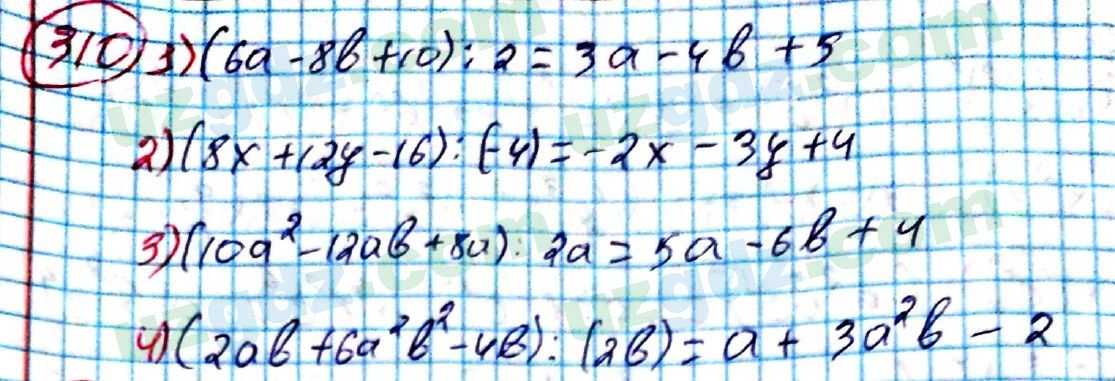 310 1) (6a - 8b + 10) : 2 = 3a - 4b + 5
2) (8x + 12y - 16) : (-4) = -2x - 3y + 4
3) (10a² - 12ab + 8a) : 2a = 5a - 6b + 4
4) (2ab + 6a²b² - 4b) : (2b) = a + 3a²b - 2
uzgdz.com